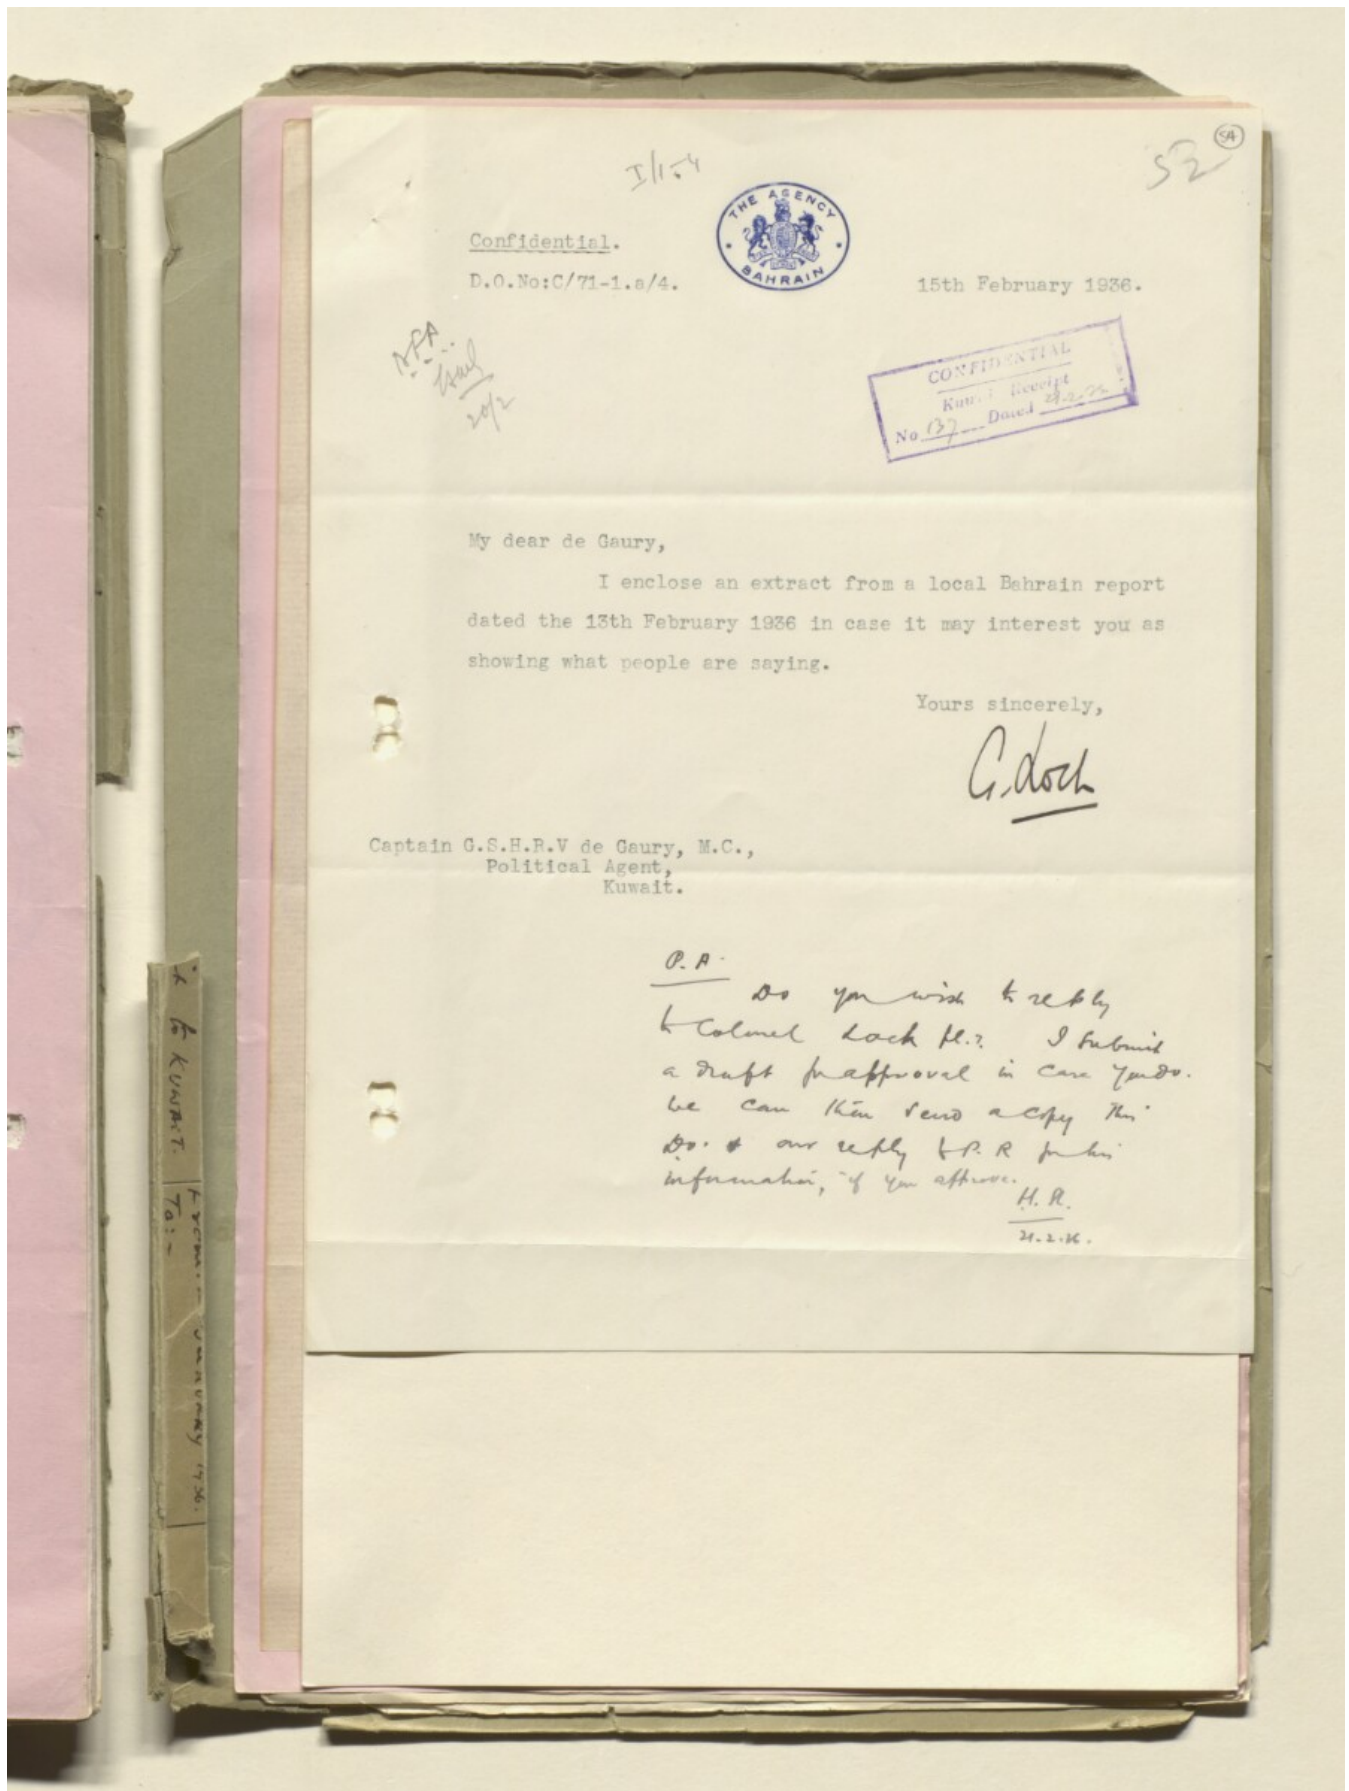 54
52
THE AGENCY
BAHRAIN
Confidential.
D.O.No:C/71-1.a/4.
15th February 1936.
20/2
CONFIDENTIAL
Receipt
No 137 Dated
My dear de Gaury,
I enclose an extract from a local Bahrain report
dated the 13th February 1936 in case it may interest you as
showing what people are saying.
Yours sincerely,
G. Loch
Captain G.S.H.R.V de Gaury, M.C.,
Political Agent,
Kuwait.
P.A.
Do you wish to reply
to Colonel Loch pl.? I submit
a draft for approval in case you do.
We can then send a copy this
D.O. & our reply to P.R for his
information, if you approve.
21.2.36.
to KUWAIT.
To:-